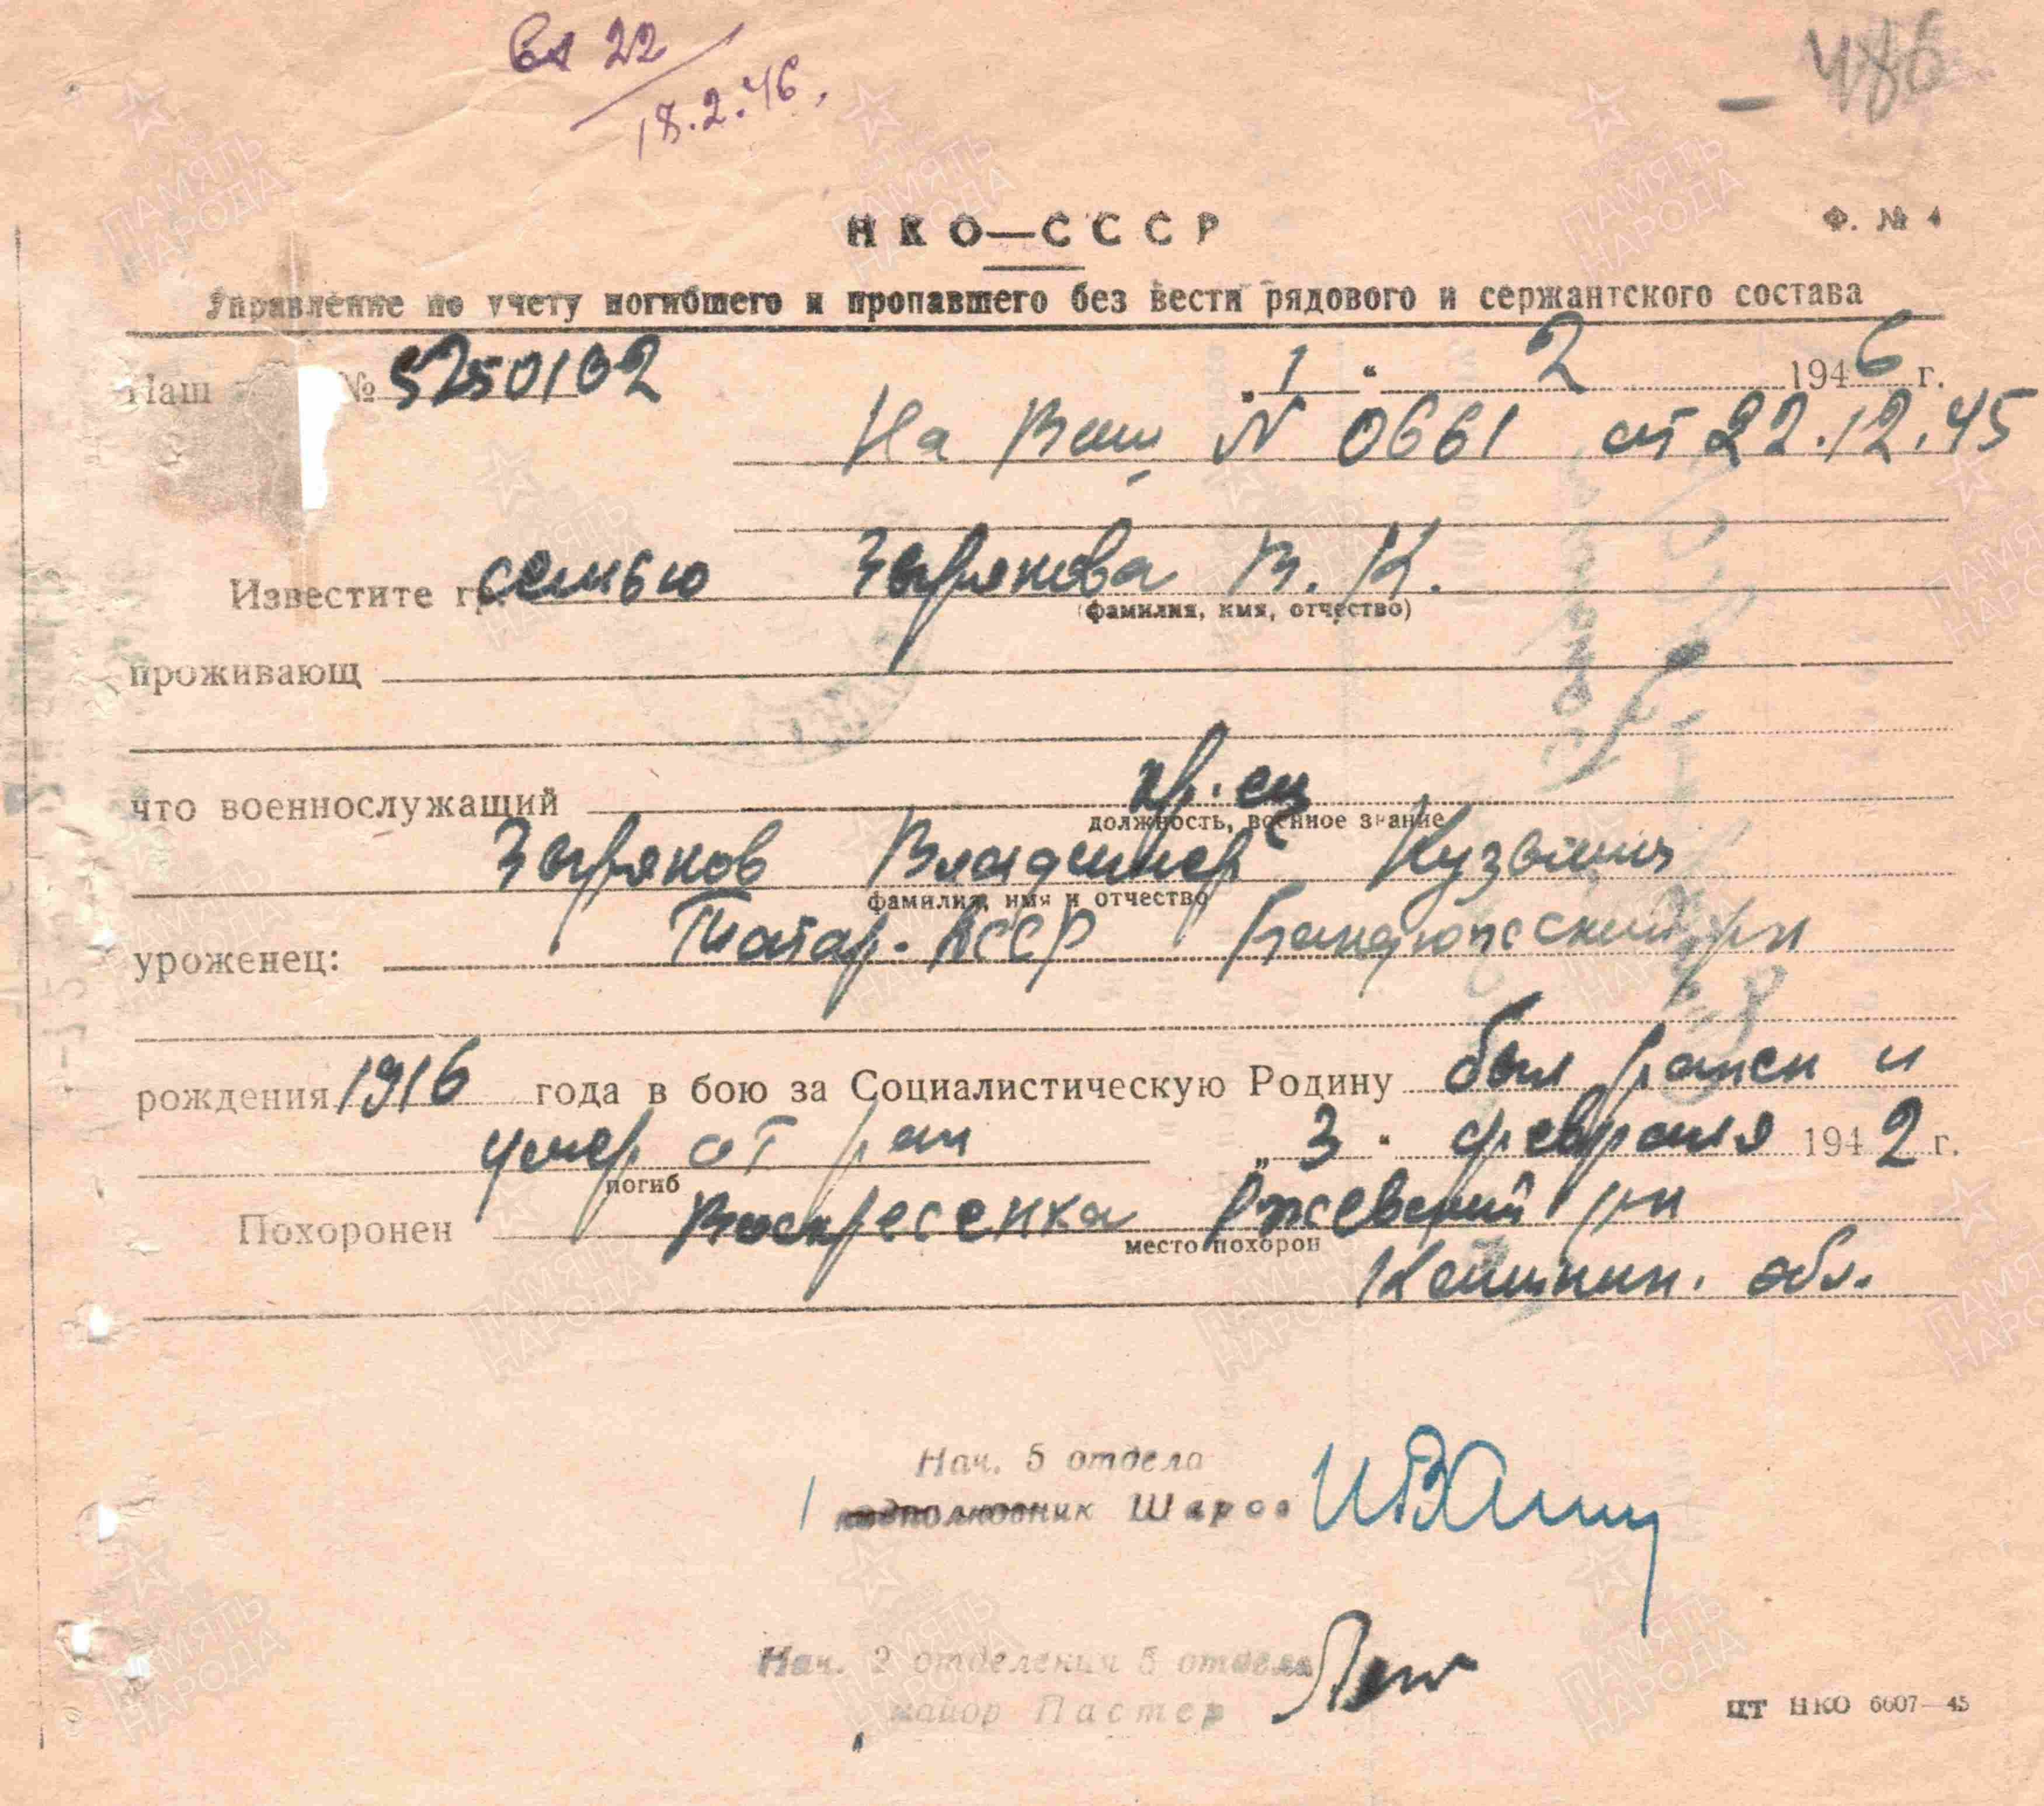 Вх 22
18.2.46.
- 486
НКО—СССР
Ф. № 4
Управление по учету погибшего и пропавшего без вести рядового и сержантского состава
Наш № 5250102
„1“ 2 1946 г.
На Ваш N 0661 от 22.12.45
Известите гр. семью Зырянова В. К.
(фамилия, имя, отчество)
проживающ
что военнослужащий кр-ец
должность, военное звание
Зырянов Владимир Кузьмич
фамилия, имя и отчество
уроженец: Татар. АССР Бондюжский р-н
рождения 1916 года в бою за Социалистическую Родину был ранен и
умер от ран „3“ февраля 1942 г.
погиб
Похоронен Воскресенка Ржевский р-н
место похорон
Калинин. обл.
Нач. 5 отдела
подполковник Шаров
Нач. 2 отделения 5 отдела
майор Пастер
ЦТ НКО 6607—45
ПАМЯТЬ НАРОДА